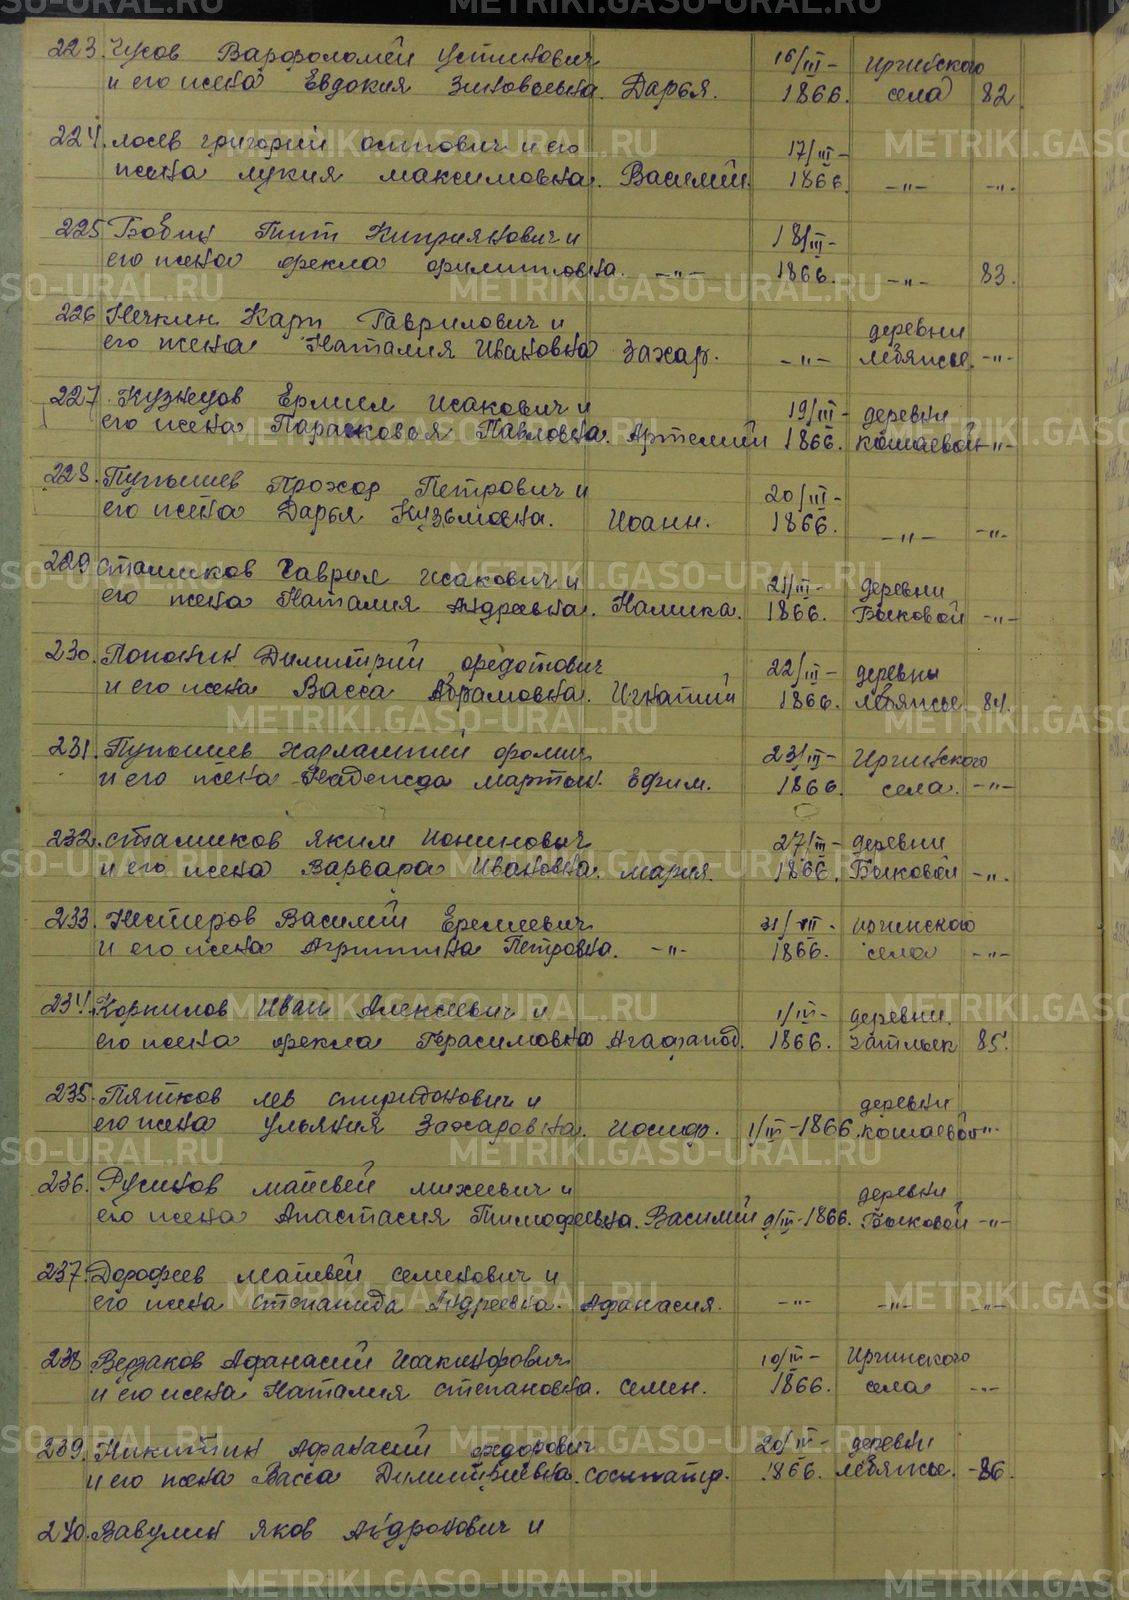 223. Чусов Варфоломей Устинович 16/III- Иргинского
и его жена Евдокия Зиновьевна. Дарья. 1866. села 82.
224. Лосев Григорий Осипович и его 17/III-
жена Лукия Максимовна. Василий. 1866. -"- -"-
225 Бобин Тит Киприянович и 18/III-
его жена Фекла Филипповна. -"- 1866. -"- 83.
226 Нечкин Карп Гаврилович и деревни
его жена Наталия Ивановна Захар. -"- Лебяжье. -"-
227. Кузнецов Ермил Исакович и 19/III- деревни
его жена Парасковья Павловна. Артемий 1866. Кошаевой -"-
228. Пупышев Прохор Петрович и 20/III-
его жена Дарья Кузьмовна. Иоанн. 1866. -"- -"-
229 Стариков Гаврил Исакович и 21/III- деревни
его жена Наталия Андреевна. 1866. Быковой -"-
230. Димитрий Федотович 22/III- деревны
и его жена Васса Абрамовна. Игнатий 1866. Лебяжье 84.
231. Пупышев Харлампий Фомич 23/III- Иргинского
и его жена Надежда Мартын. Ефим. 1866. села. -"-
232. Яким Ионинович 27/III- деревни
и его жена Варвара Ивановна. Мария. 1866. Быковой -"-
233. Нестеров Василий Еремеевич 31/III- Иргинского
и его жена Агриппина Петровна. -"- 1866. села -"-
234. Корнилов Иван Алексеевич и 1/IV- деревни
его жена Фекла Герасимовна Агафапод. 1866. 85.
235. Пятков Лев Спиридонович и деревни
его жена Ульяния Захаровна. Иосиф. 1/IV-1866. Кошаевой -"-
236. Русинов Матвей Михеевич и деревни
его жена Анастасия Тимофеевна. Василий 9/IV-1866. Быковой -"-
237. Дорофеев Матвей Семенович и
его жена Степанида Андреевна. Афанасия. -"- -"- -"-
238 Верзаков Афанасий Иоакинфович 10/IV- Иргинского
и его жена Наталия Степановна. Семен. 1866. села -"-
239. Никитин Афанасий Федорович 20/IV- деревни
и его жена Васса Димитриевна. Сосипатр. 1866. Лебяжье. -86.
240. Вавулин Яков Андронович и
METRIKI.GASO-URAL.RU